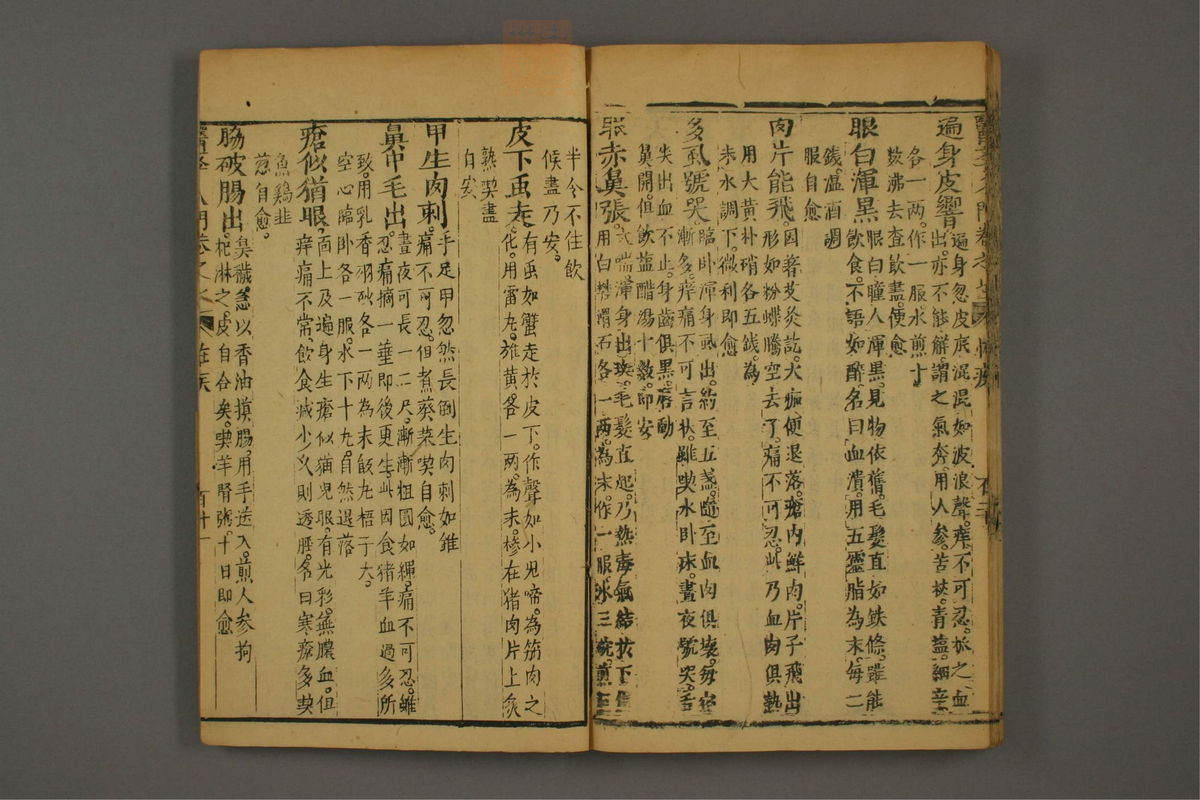 醫學入門卷之七 怪疾
遍身皮響
遍身忽皮底混混如波浪聲。痒不可忍。抓之血
出。亦不能解。謂之氣奔。用人參。苦杖。青鹽。細辛
各一兩。作一服水煎十
數沸去查飲盡。便愈
眼白渾黑
眼白瞳人渾黑。見物依舊。毛髮直如鉄條。雖能
飲食。不語如醉。名曰血潰。用五靈脂為末。每二
錢。溫酒調
服自愈
肉片能飛
因著艾灸訖。火痂便退落。瘡內鮮肉片子飛出
形如粉蝶騰空去了。痛不可忍。此乃血肉俱熱
用大黃朴硝各五錢。為
末水調下。微利即愈
多虱號哭
臨臥渾身虱出。約至五盞。隨至血肉俱壞。每宿
漸多。痒痛不可言状。雖喫水臥床。晝夜號哭。舌
尖出血不止。身齒俱黑。唇動
鼻開。但飲鹽醋湯十數。即安
眼赤鼻張
大喘。渾身出斑。毛髮直起。乃熱毒氣結於下焦
用白礬滑石各一兩。為末。作一服。水三碗。煎至
半令不住飲
候盡乃安。
皮下虫走
有虫如蟹走於皮下。作聲如小兒啼。為筋肉之
化。用雷丸。雄黃各一兩。為末。摻在猪肉片上炙
熟喫盡
自安
甲生肉刺
手足甲忽然長倒生肉刺如錐
痛不可忍。但煮葵菜喫自愈。
鼻中毛出
晝夜可長一二尺。漸漸粗圓如繩。痛不可忍。雖
忍痛摘一莖即後更生。此因食猪羊血過多所
致。用乳香硇砂各一兩為末。飯丸梧子大。
空心臨臥各一服。水下十丸。自然退落
瘡似猫眼
面上及遍身生瘡似猫兒眼。有光彩。無膿血。但
痒痛不常。飲食減少。久則透脛。名曰寒瘡。多喫
魚鷄韭
葱自愈。
脇破腸出
臭穢。急以香油摸腸。用手送入。煎人參枸
杞淋之。皮自合矣。喫羊腎粥。十日即愈
醫學入門卷之七 怪疾 百廿一